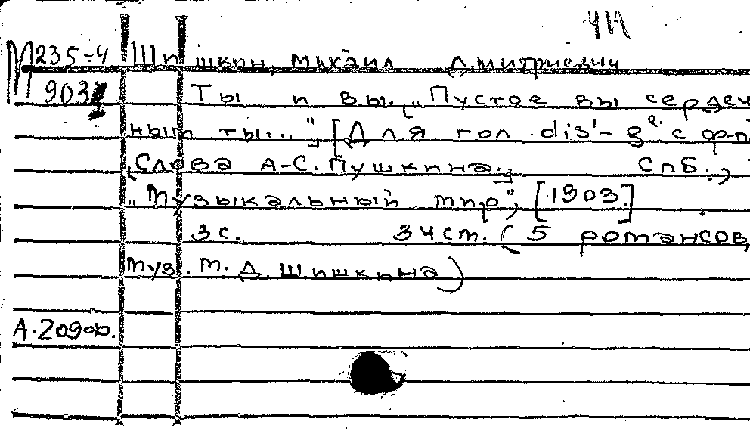 М235-4 Шишкин, Михаил Дмитриевич
903
Ты и вы. „Пустое вы сердеч
ным ты...". [Для гол. dis'-g². с ф-п
Слова А-С. Пушкина. СПБ.,
„Музыкальный мир", [1903.]
3 с. 3 нст. (5 романсов,
муз. М. Д. Шишкина)
А.2090